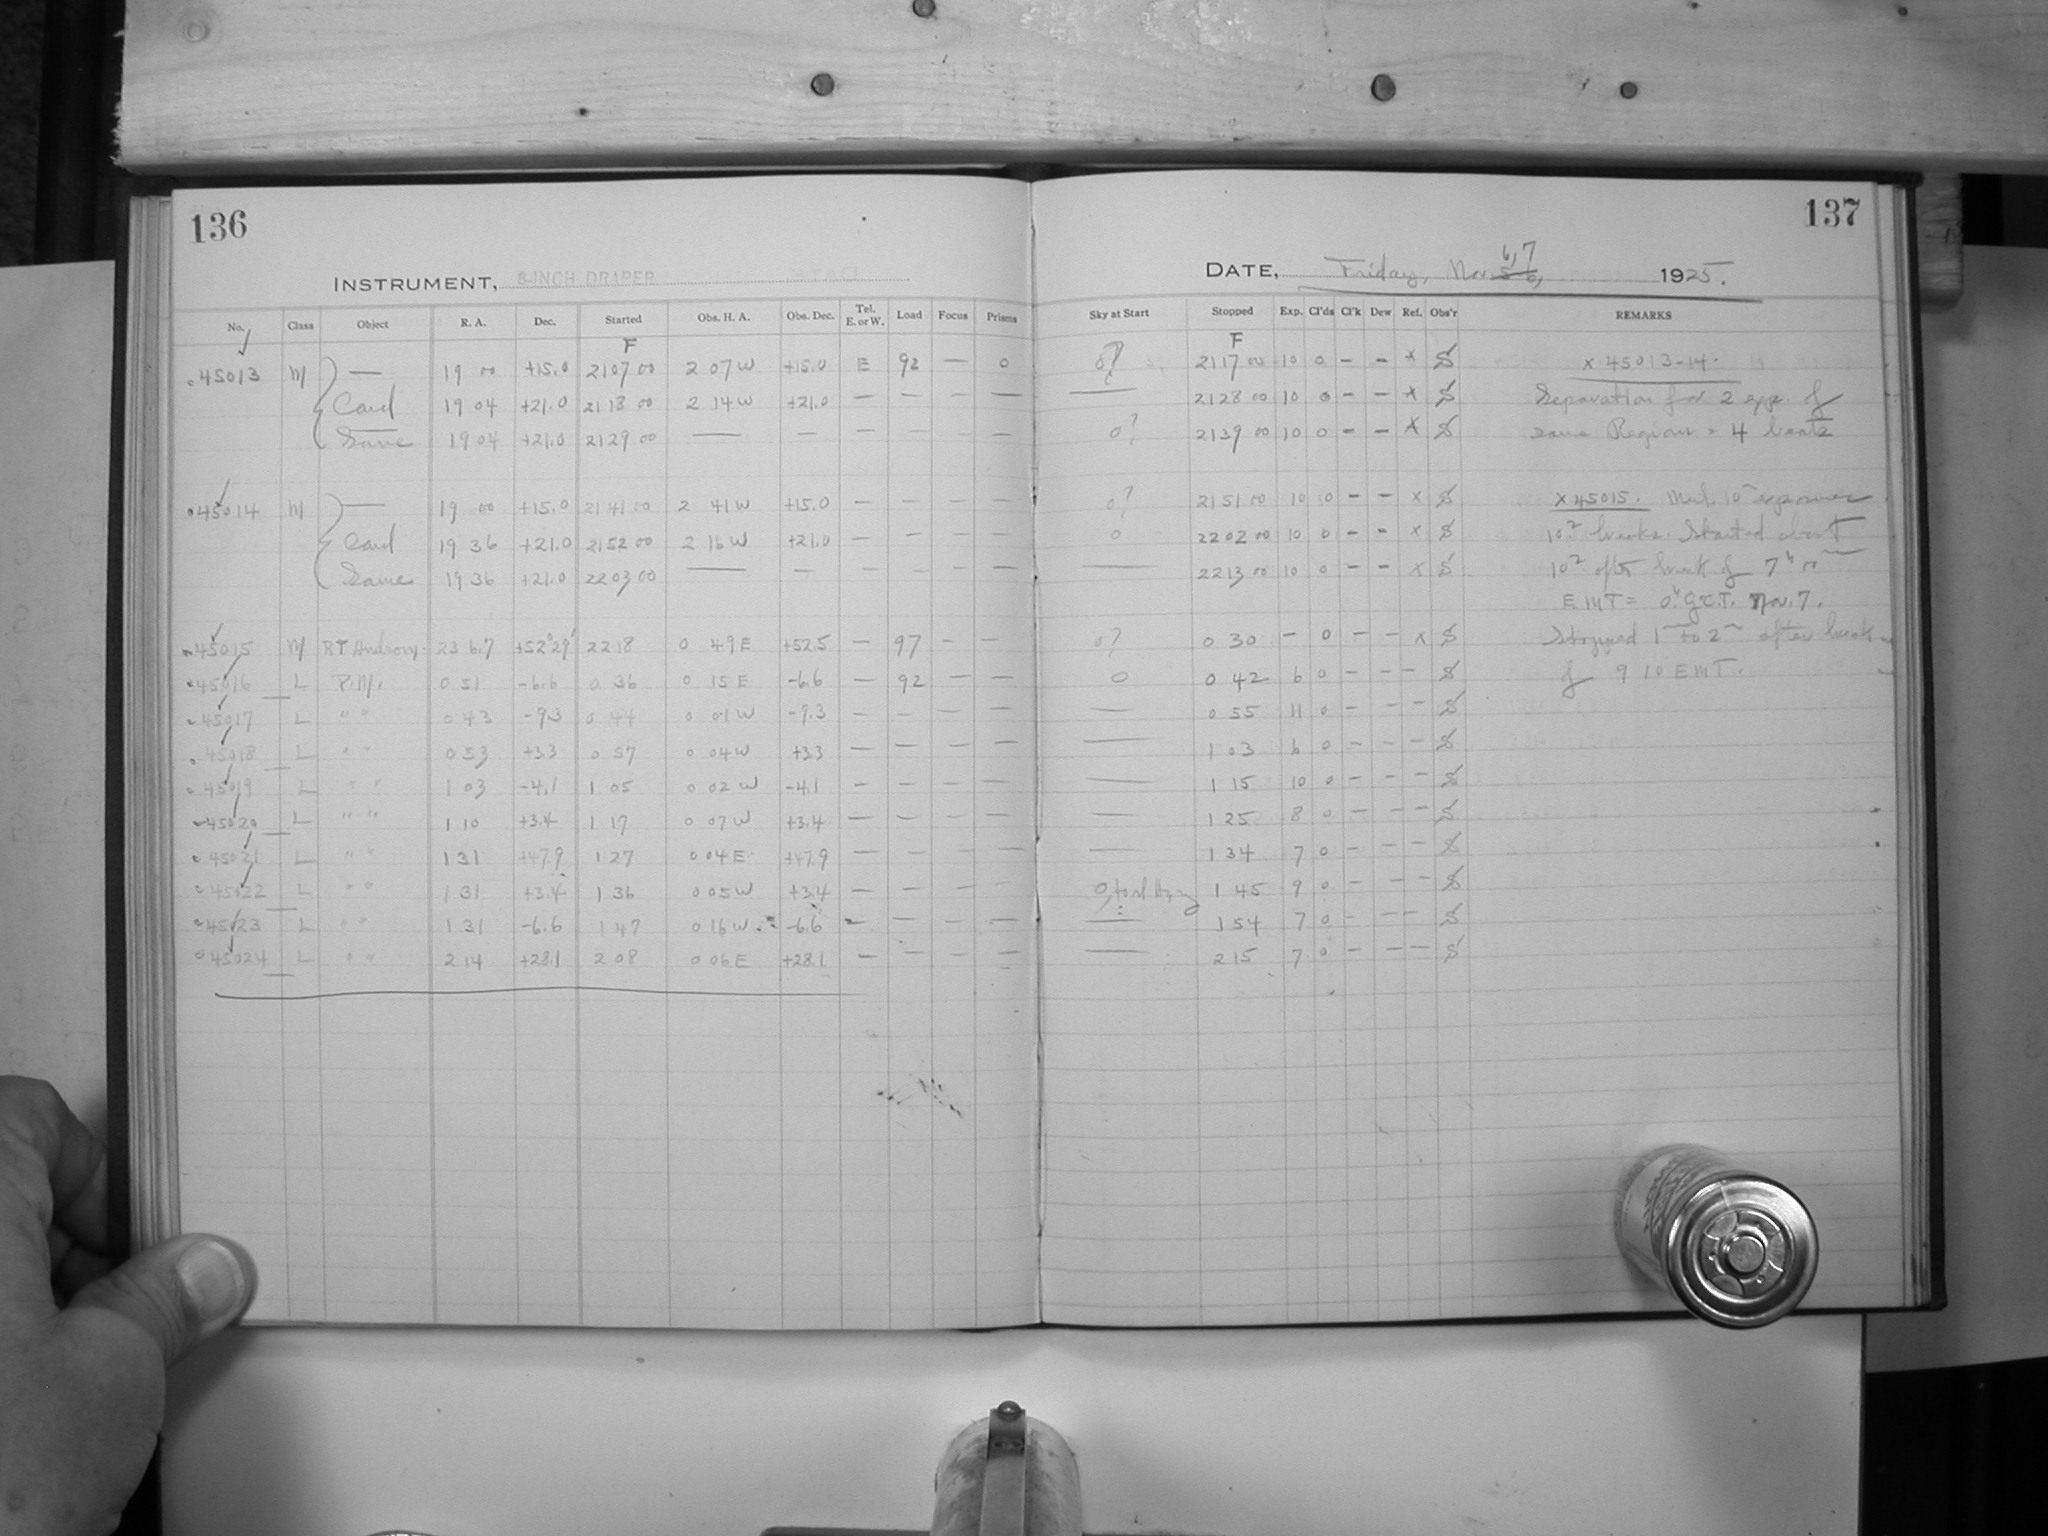 136
137
INSTRUMENT, 8-INCH DRAPER
DATE, Friday, Nov. 5 6, 6,7 1925.
No. Class Object R. A. Dec. Started Obs. H. A. Obs. Dec. Tel. E. or W. Load Focus Prisms Sky at Start Stopped Exp. Cl'ds Cl'k Dew Ref. Obs'r REMARKS
F F
45013 M — 19 00 +15.0 2107 00 2 07 W +15.0 E 92 — 0 0? 2117 00 10 0 — — x S x 45013-14.
Card 19 04 +21.0 2118 00 2 14 W +21.0 — — — — — 2128 00 10 0 — — x S Separation for 2 exp. of
Same 19 04 +21.0 2129 00 — — — — — — 0? 2139 00 10 0 — — x S same Region = 4 beats
45014 M — 19 00 +15.0 2141 00 2 41 W +15.0 — — — — 0? 2151 00 10 0 — — x S x 45015. Mul. 10 exposures
Card 19 36 +21.0 2152 00 2 16 W +21.0 — — — — 0 2202 00 10 0 — — x S 10 breaks. Started about
Same 19 36 +21.0 2203 00 — — — — — — — 2213 00 10 0 — — x S 10 after break of 7h 00m
EMT = 0h G.C.T. Nov. 7.
45015 M RT Androm. 23 6.7 +52°29' 22 18 0 49 E +52.5 — 97 — — 0? 0 30 — 0 — — x S Stopped 1m to 2m after break
45016 L P.M. 0 51 -6.6 0 36 0 15 E -6.6 — 92 — — 0 0 42 6 0 — — — S of 9 10 EMT.
45017 L " " 0 43 -9.3 0 44 0 01 W -9.3 — — — — — 0 55 11 0 — — — S
45018 L " " 0 53 +3.3 0 57 0 04 W +3.3 — — — — — 1 03 6 0 — — — S
45019 L " " 1 03 -4.1 1 05 0 02 W -4.1 — — — — — 1 15 10 0 — — — S
45020 L " " 1 10 +3.4 1 17 0 07 W +3.4 — — — — — 1 25 8 0 — — — S
45021 L " " 1 31 +47.9 1 27 0 04 E +47.9 — — — — — 1 34 7 0 — — — S
45022 L " " 1 31 +3.4 1 36 0 05 W +3.4 — — — — 0, 1 45 9 0 — — — S
45023 L " " 1 31 -6.6 1 47 0 16 W -6.6 — — — — — 1 54 7 0 — — — S
45024 L " " 2 14 +28.1 2 08 0 06 E +28.1 — — — — — 2 15 7 0 — — — S